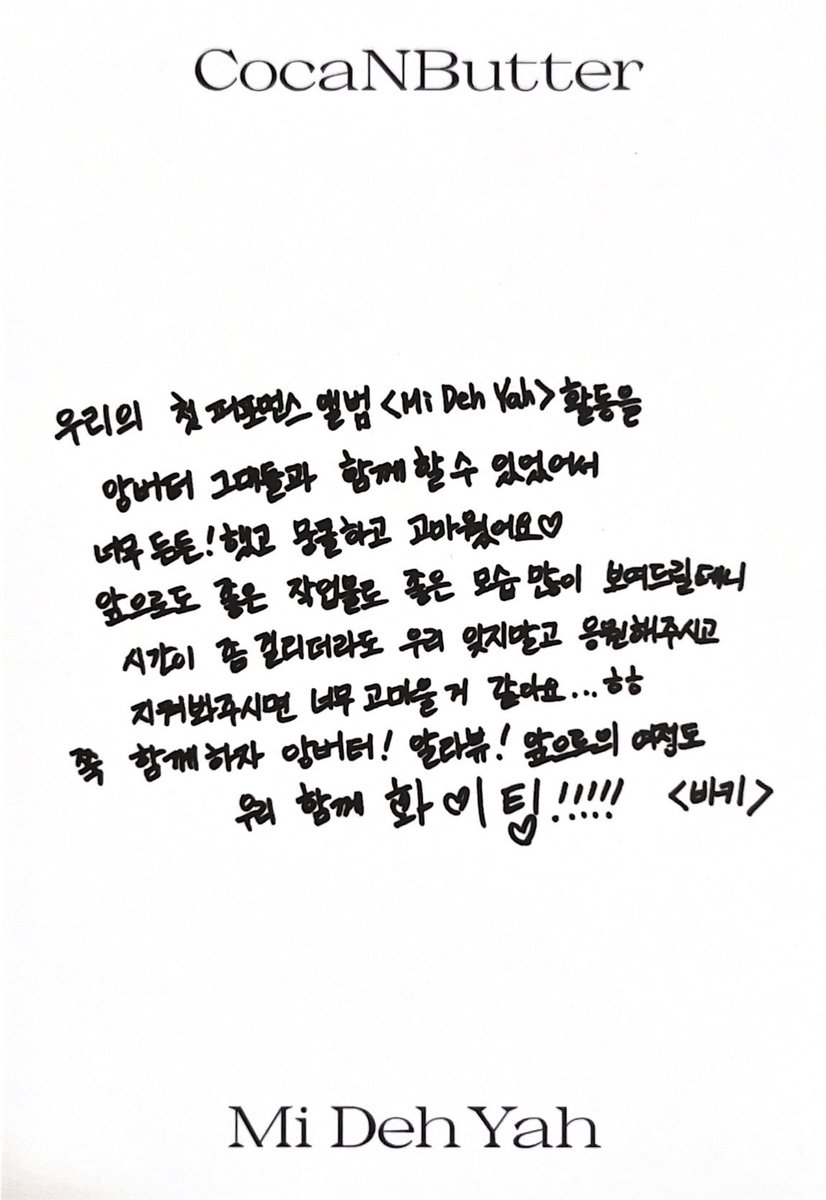 CocaNButter
우리의 첫 퍼포먼스 앨범 <Mi Deh Yah> 활동을
앙버터 그대들과 함께 할 수 있었어서
너무 든든! 했고 뭉클하고 고마웠어요♡
앞으로도 좋은 작업물로 좋은 모습 많이 보여드릴테니
시간이 좀 걸리더라도 우리 잊지말고 응원해주시고
지켜봐주시면 너무 고마울 거 같아요... ㅎㅎ
쭉 함께하자 앙버터! 알라뷰! 앞으로의 여정도
우리 함께 화♡이팅♡!!!!! <비키>
Mi Deh Yah